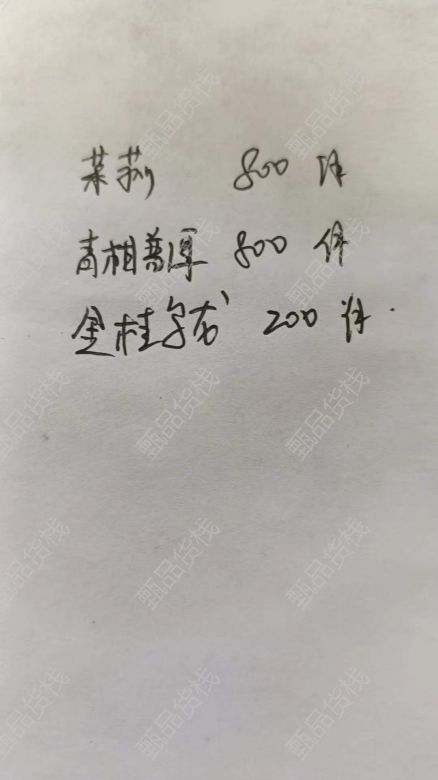 茉莉 800 件
青柑普洱 800 件
金桂乌龙 200 件.
甄品货栈